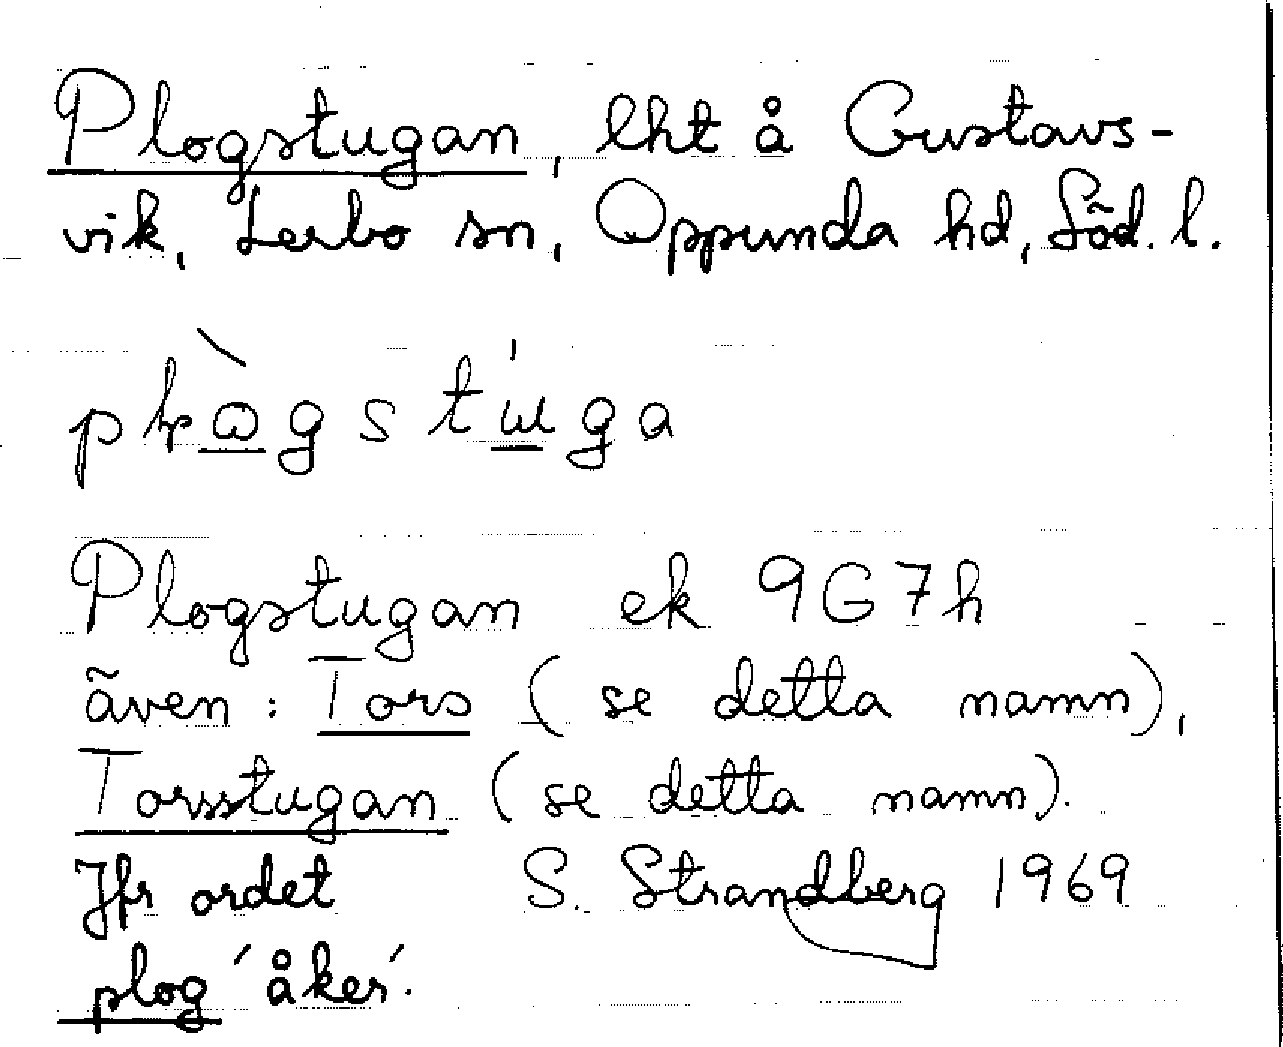 Plogstugan, lht å Gustavs-
vik, Lerbo sn, Oppunda hd, Söd. l.
Plogstugan ek 9G7h
även: Tors (se detta namn),
Torsstugan (se detta namn).
Jfr ordet S. Strandberg 1969
plog ´åker´.